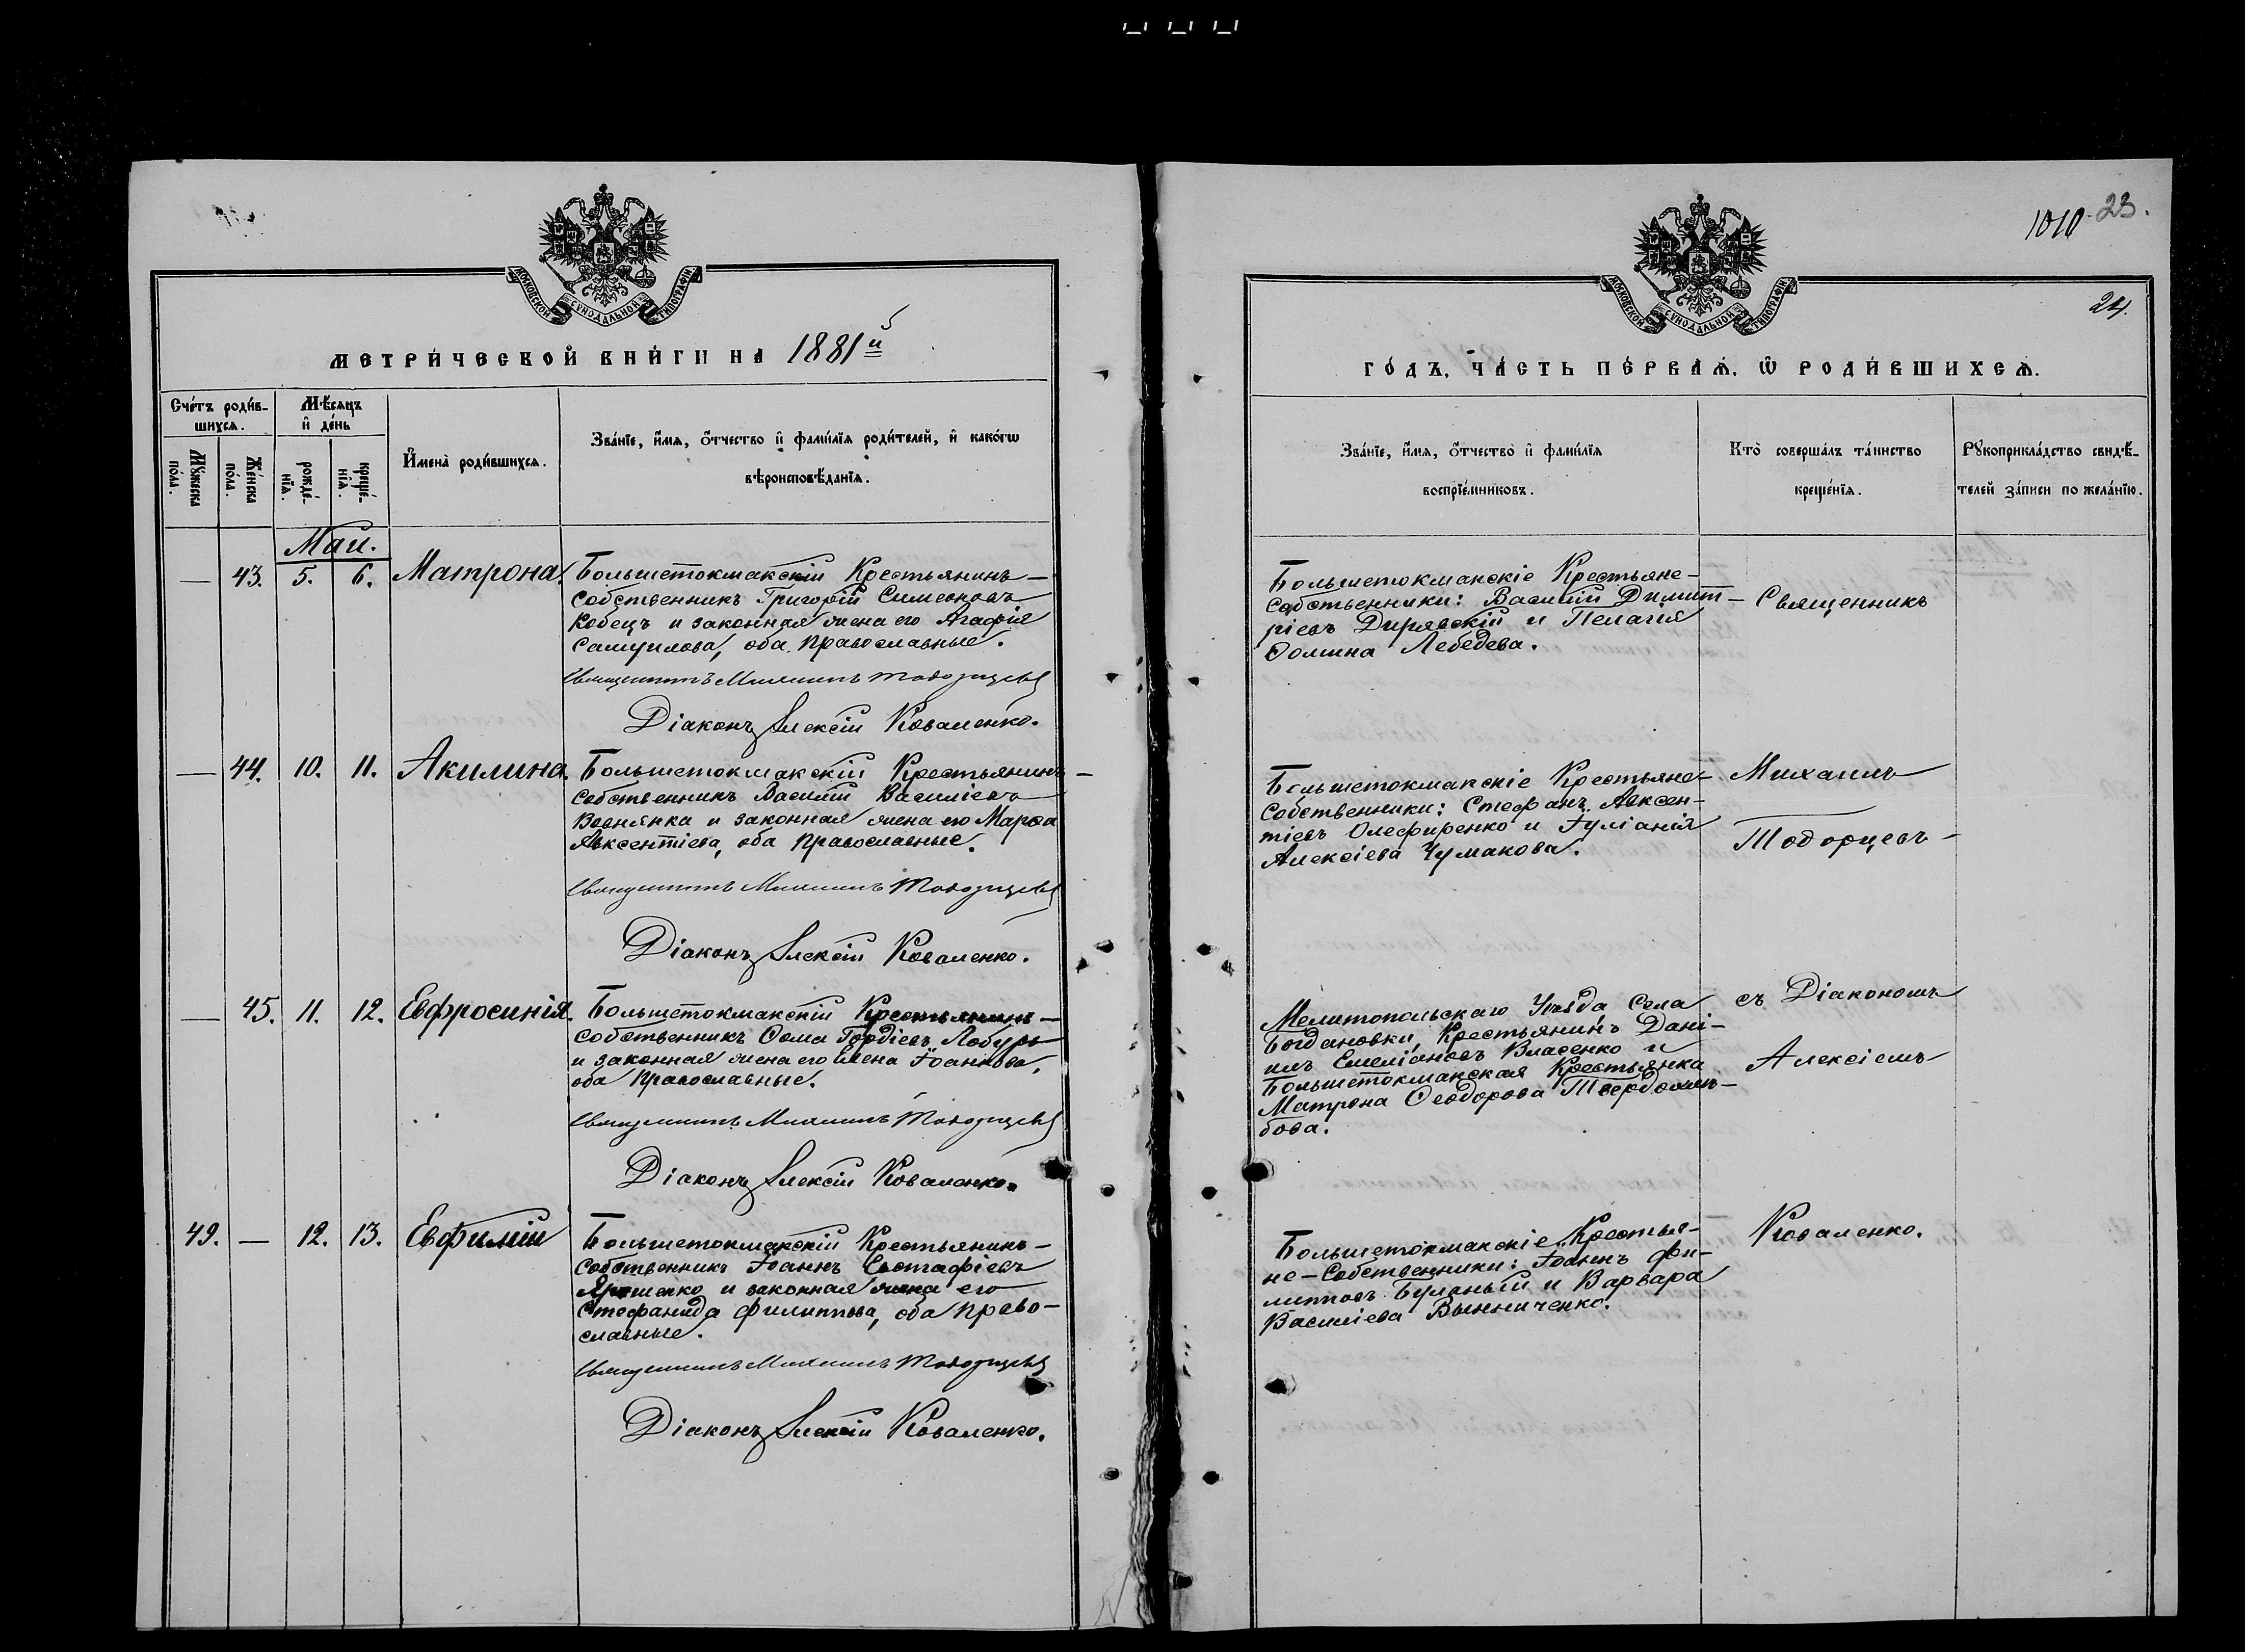 1010 23.
24.
МОСКОВСКОЙ СѴНОДАЛЬНОЙ ТИПОГРАФІИ
МЕТРИ́ЧЕСКОЙ КНИ́ГИ НА 1881й
Сче́тъ роди́в-
шихся.
Мѣ́сяцъ
и҆ де́нь
Мꙋ́жеска
по́ла.
Же́нска
по́ла.
рожде́-
нїѧ.
креще́-
нїѧ.
И҆мена̀ роди́вшихсѧ.
Зва́нїе, и҆́мѧ, ѻ҆́тчество и҆ фами́лїѧ роди́телей, и҆ како́гѡ
вѣроисповѣ́данїѧ.
Май.
— 43. 5. 6. Матрона.
Большетокмакскій Крестьянинъ—
Собственникъ Григорій Симеоновъ
Кобецъ и законная жена его Агафія
Самуилова, оба православные.
Священникъ Михаилъ Тодорцевъ
Діаконъ Алексій Коваленко.
— 44. 10. 11. Акилина.
Большетокмакскій Крестьянинъ—
Собственникъ Василій Василіевъ
Вовнянка и законная жена его Марѳа
Авксентіева, оба православные.
Священникъ Михаилъ Тодорцевъ
Діаконъ Алексій Коваленко.
— 45. 11. 12. Евфросинія.
Большетокмакскій Крестьянинъ—
Собственникъ Ѳома Гордіевъ Лобуръ
и законная жена его Елена Іоаннова,
оба православные.
Священникъ Михаилъ Тодорцевъ
Діаконъ Алексій Коваленко.
49. — 12. 13. Евфимій
Большетокмакскій Крестьянинъ—
Собственникъ Іоаннъ Евстафіевъ
Ярошенко и законная жена его
Стефанида Филиппова, оба право-
славные.
Священникъ Михаилъ Тодорцевъ
Діаконъ Алексій Коваленко.
МОСКОВСКОЙ СѴНОДАЛЬНОЙ ТИПОГРАФІИ
ГО́ДЪ, ЧА́СТЬ ПЕ́РВАѦ, Ѡ҆ РОДИ́ВШИХСѦ.
Зва́нїе, и҆́мѧ, ѻ҆́тчество и҆ фами́лїѧ
воспрїе́мниковъ.
Кто̀ соверша́лъ та́инство
креще́нїѧ.
Рꙋкоприкла́дство свидѣ́-
телей за́писи по жела́нїю.
Большетокмакскіе Крестьяне-
Собственники: Василій Димит-
ріевъ Дирявскій и Пелагія
Ѳомина Лебедева.
Большетокмакскіе Крестьяне-
Собственники: Стефанъ Авксен-
тіевъ Олефиренко и Іуліанія
Алексіева Чумакова.
Мелитопольскаго Уѣзда Села
Богдановки, Крестьянинъ Дані-
илъ Емеліановъ Власенко и
Большетокмакская Крестьянка
Матрона Ѳеодорова Твердохлѣ-
бова.
Большетокмакскіе Крестья-
не-Собственники: Іоаннъ Фи-
липповъ Буланый и Варвара
Василіева Винниченко.
Священникъ
Михаилъ
Тодорцевъ
съ Діакономъ
Алексіемъ
Коваленко.